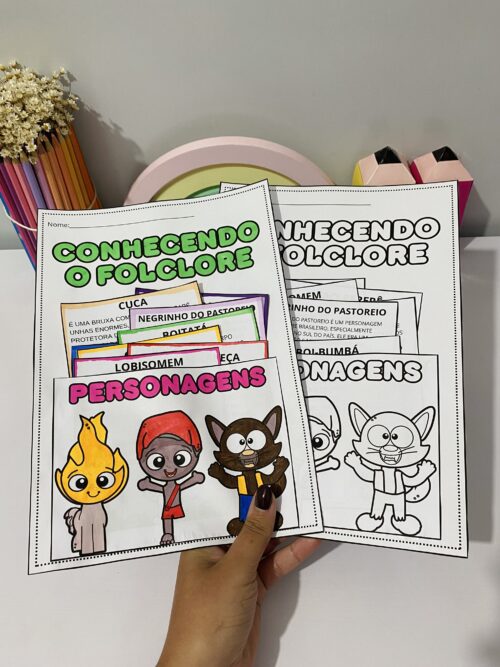 Nome:
CONHECENDO
O FOLCLORE
CUCA
É UMA BRUXA COM
UNHAS ENORMES,
PROTETORA
NEGRINHO DO PASTOREIO
BOITATÁ
LOBISOMEM
PERSONAGENS
NHECENDO
FOLCLORE
MEM
INHO DO PASTOREIO
DO PASTOREIO É UM PERSONAGEM
BRASILEIRO, ESPECIALMENTE
NO SUL DO PAÍS. ELE ERA
BOI-BUMBÁ
ONAGENS